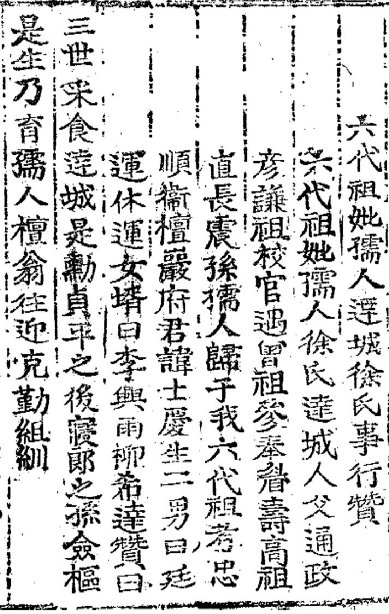 六代祖妣孺人達城徐氏事行贊
六代祖妣孺人徐氏達城人父通政
彦謙祖校官遇曾祖參奉眉壽高祖
直長震孫孺人歸于我六代祖考忠
順衞檀巖府君諱士慶生二男曰廷
運休運女壻曰李興雨柳希達贊曰
三世采食達城是勳貞平之後寢郎之孫僉樞
是生乃育孺人檀翁往迎克勤組紃